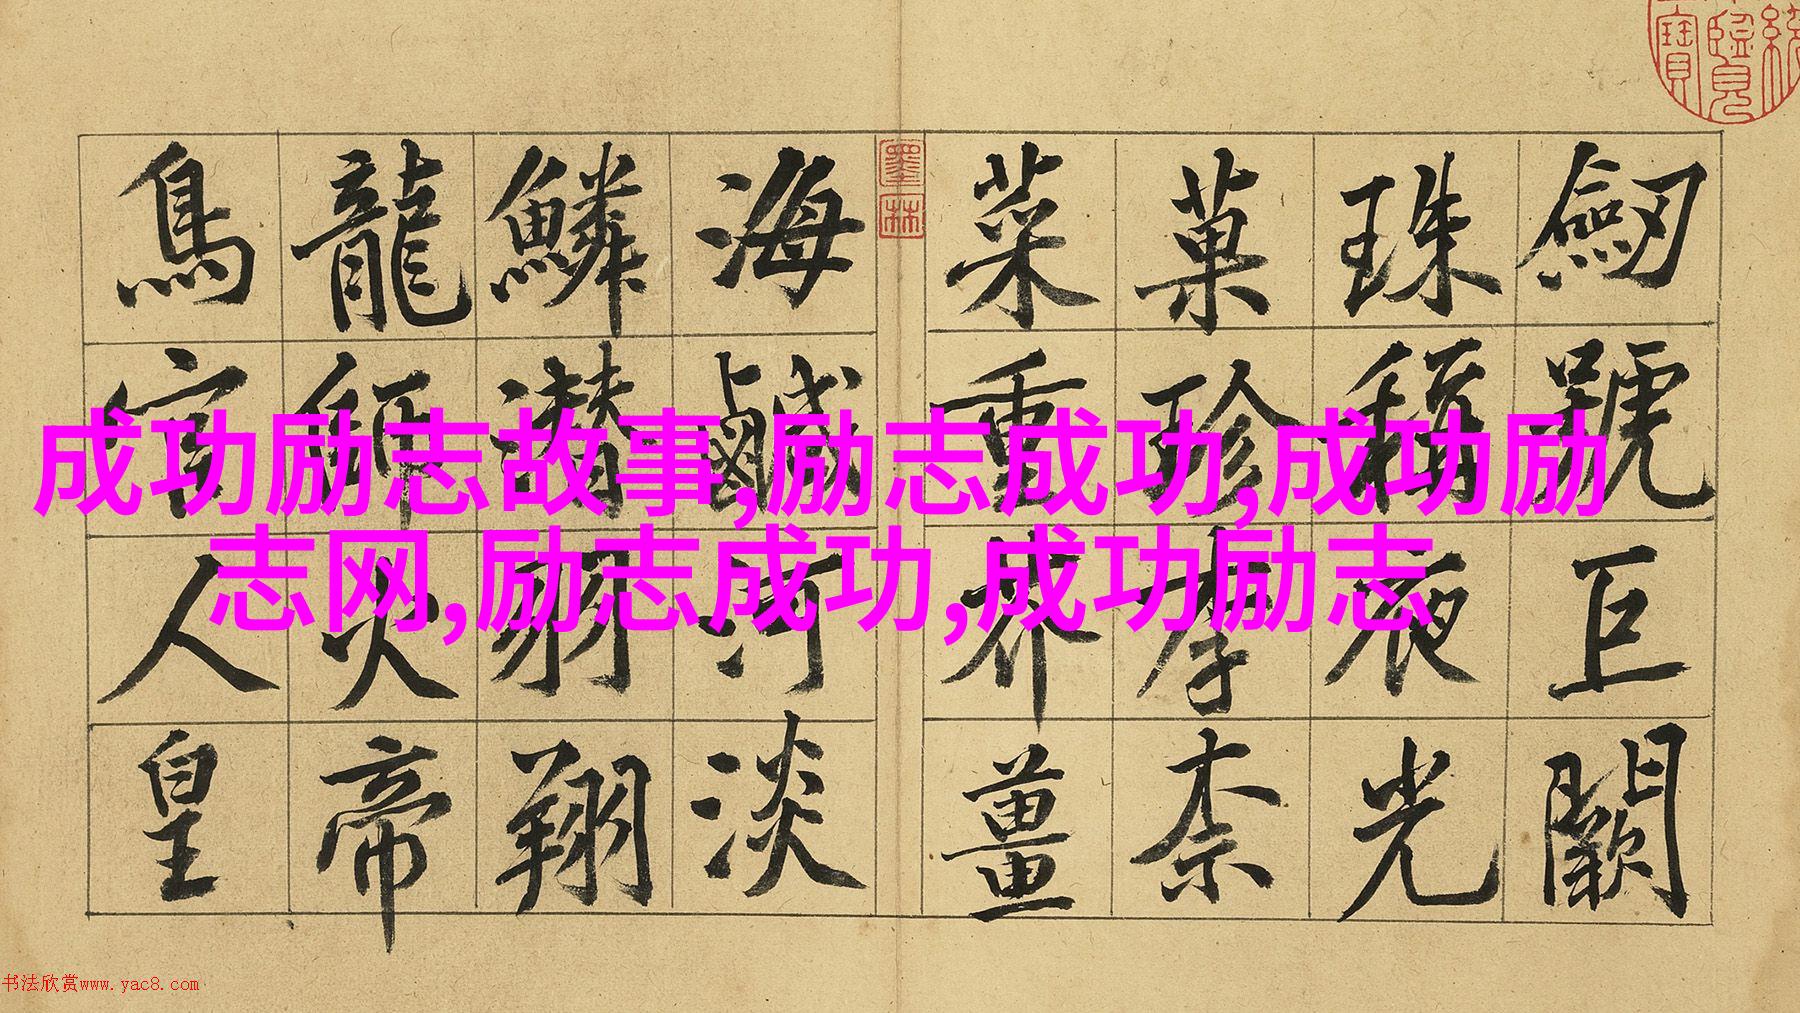 劒號巨闕
珠稱夜光
菓珍李柰
菜重芥薑
墨林
海鹹河淡
鱗潜羽翔
龍師火帝
鳥官人皇
成功励志故事,励志成功,成功励
志网,励志成功,成功励志
书法欣赏www.yac8.com